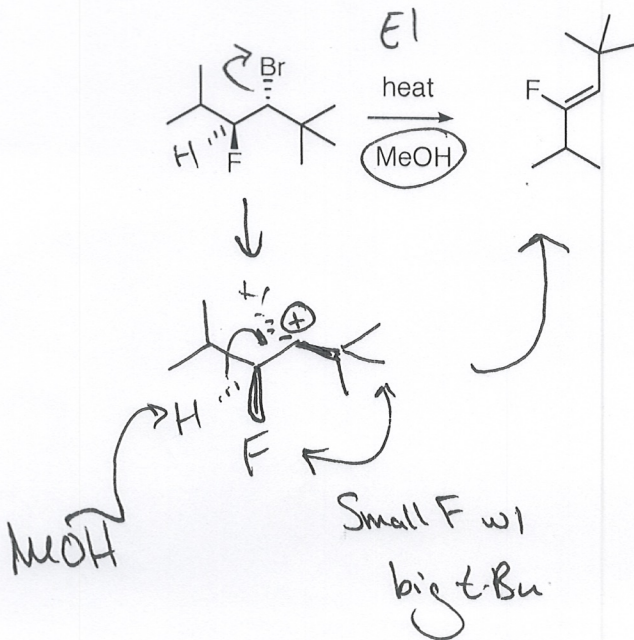 E1
Br
heat
MeOH
H
F
F
+1
+
H
F
MeOH
Small F w/
big t-Bu